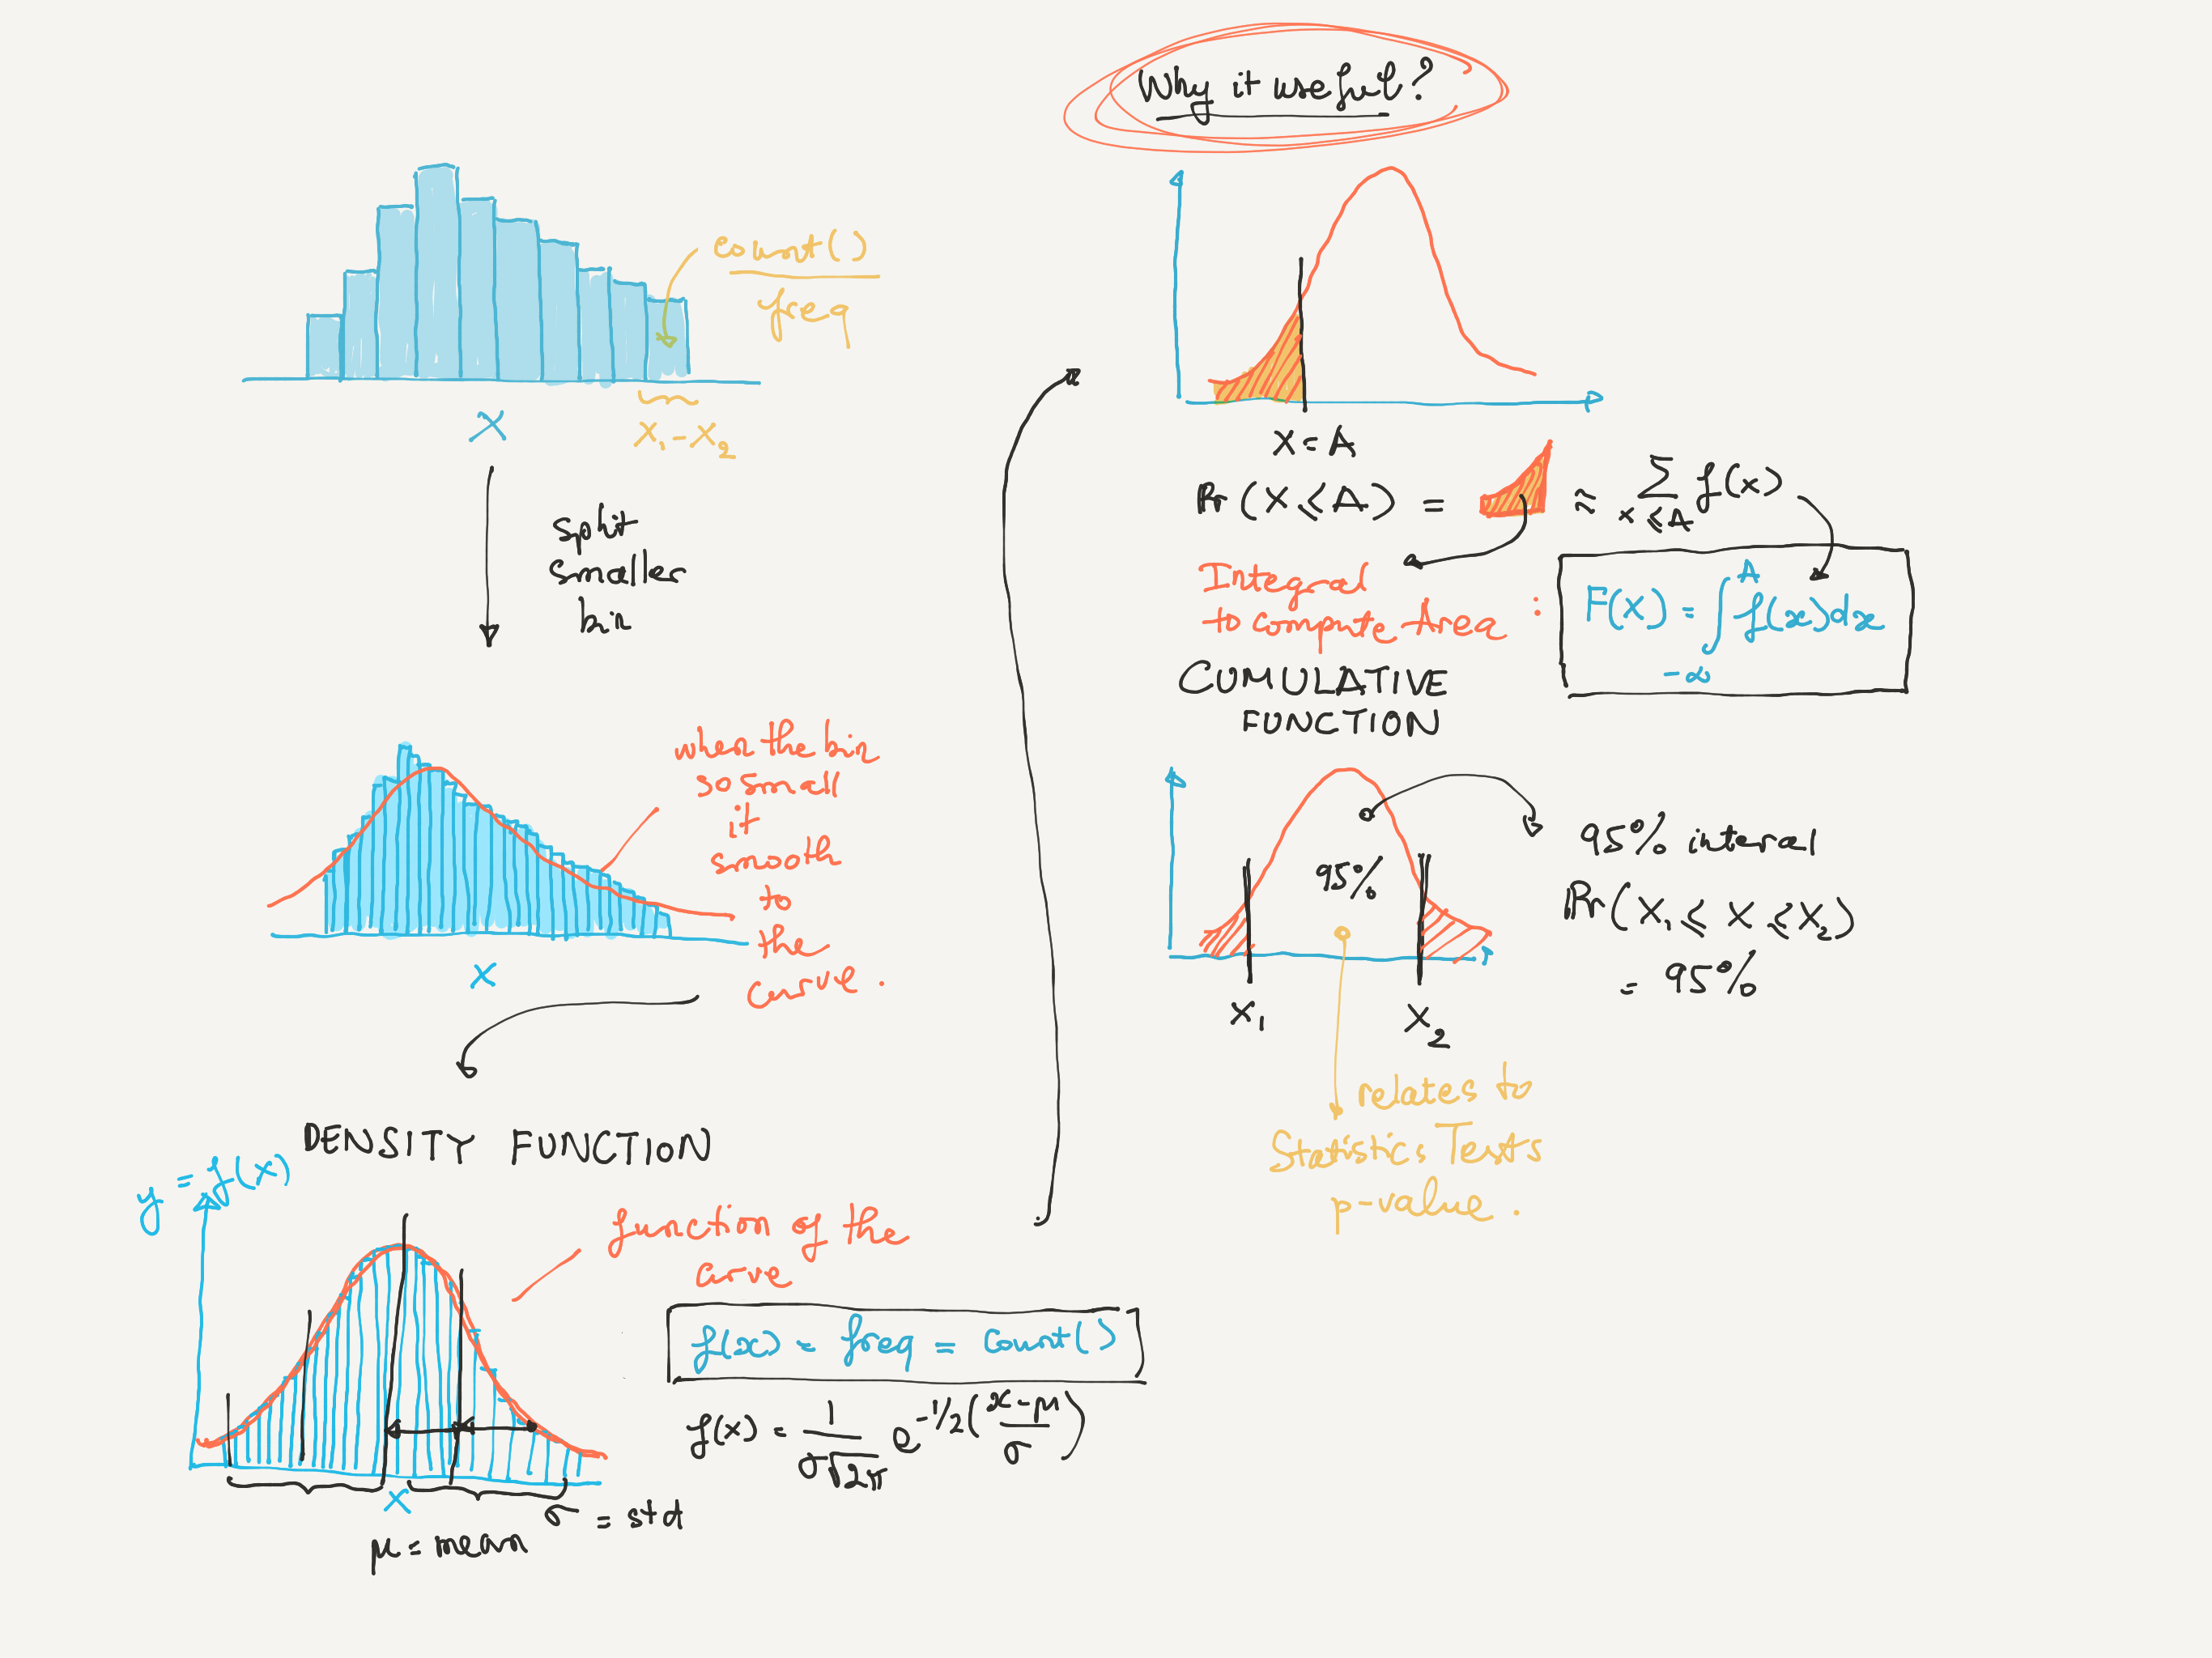 count()
freq
X
X₁-X₂
split
smaller
bin
when the bin
so small
it
smooth
to
the
curve.
X
DENSITY FUNCTION
y = f(x)
function of the
curve
f(x) = freq = Count()
f(x) = 1/σ√2π e^-1/2((x-μ)/σ)
X
σ = std
μ = mean
Why it useful?
X=A
Pr(X≤A) = ≈ Σ x≤A f(x)
Integral
to compute Area :
F(X) = ∫ A -∞ f(x)dx
CUMULATIVE
FUNCTION
95%
95% interal
Pr(X₁ ≤ X ≤ X₂)
= 95%
X₁ X₂
relates to
Statistics Tests
p-value.